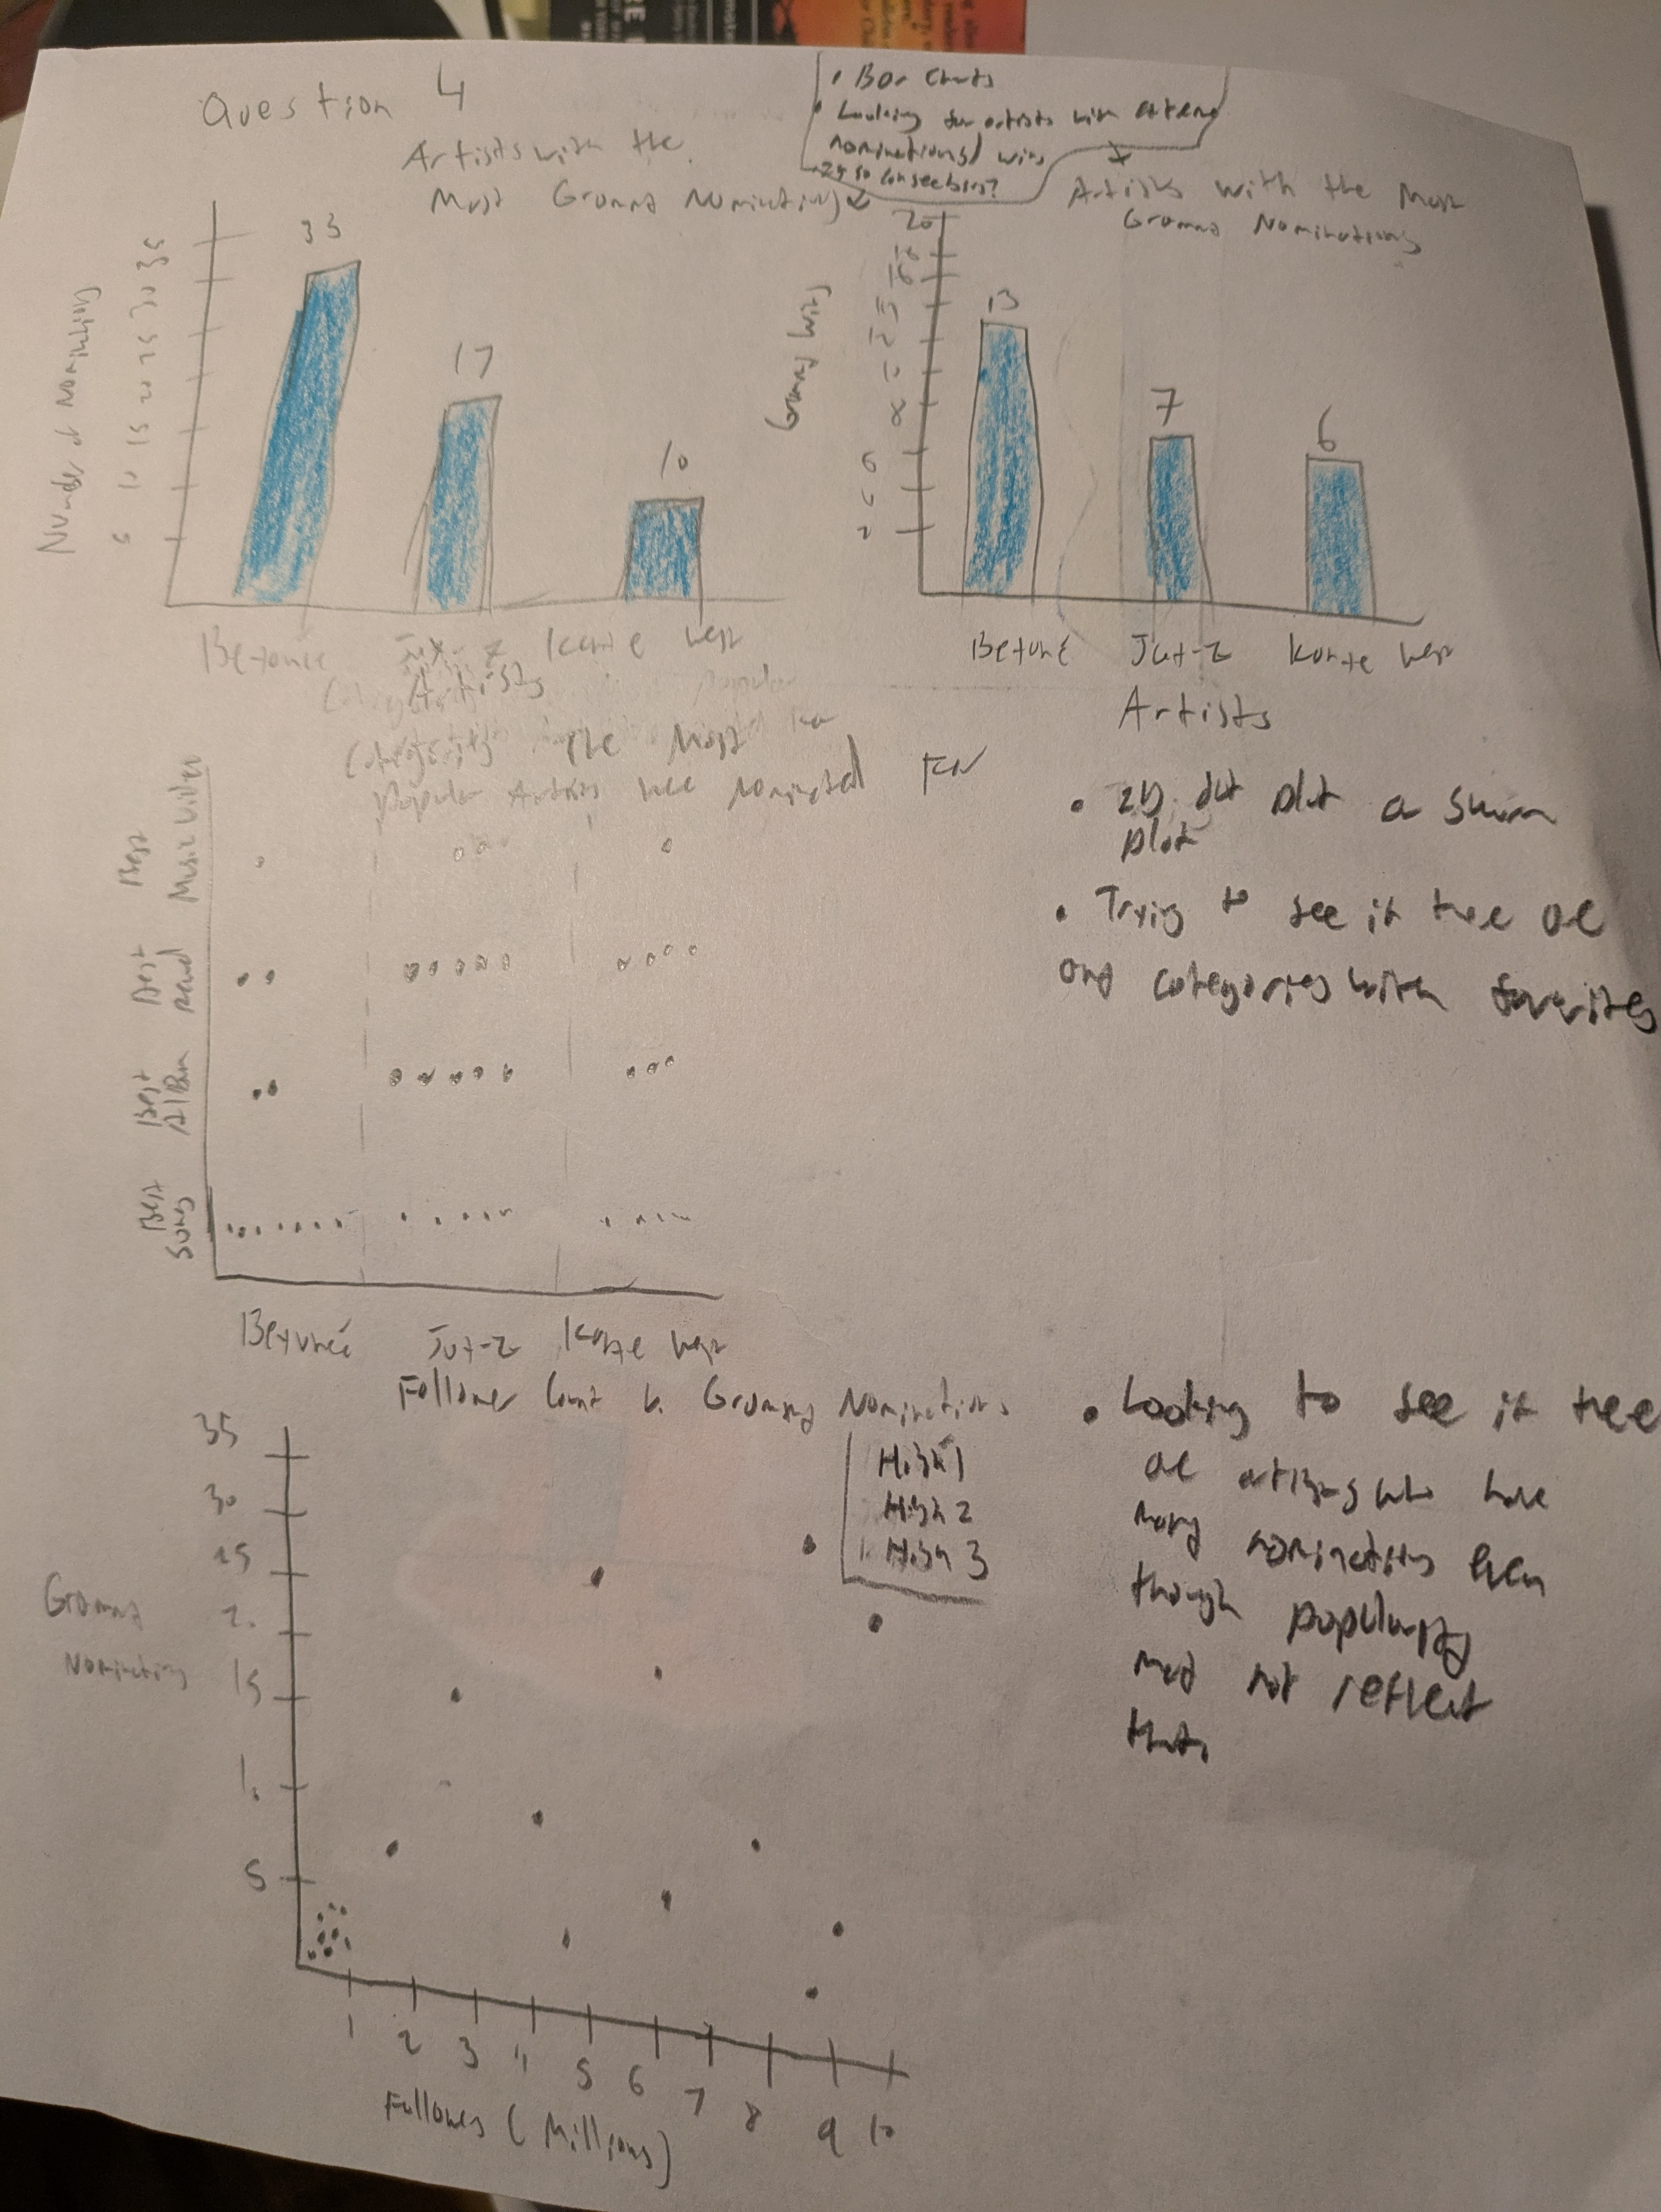 Question 4
• Bar Charts
• Looking for artists with extreme
nominations/wins
Artists with the
Most Grammy Nominations
33
17
10
Number of Nominations
35
30
25
20
15
10
5
Beyoncé Jay-Z Kanye West
Artists
Artists with the Most
Grammy Nominations
Grammy Wins
20
13
7
6
6
2
Beyoncé Jay-Z Kanye West
Artists
Categories The Most
Popular Artists were Nominated For
Best Music Video
Best
Best Album
Best Song
Beyoncé Jay-Z Kanye West
• 2D dot plot a swarm
plot
• Trying to see if there are
any categories with favorites
Follower Count v. Grammy Nominations
High 1
High 2
High 3
35
30
25
20
15
10
5
Grammy
Nominations
1 2 3 4 5 6 7 8 9 10
Followers (Millions)
• Looking to see if there
are artists who have
many nominations even
though popularity
may not reflect
that.